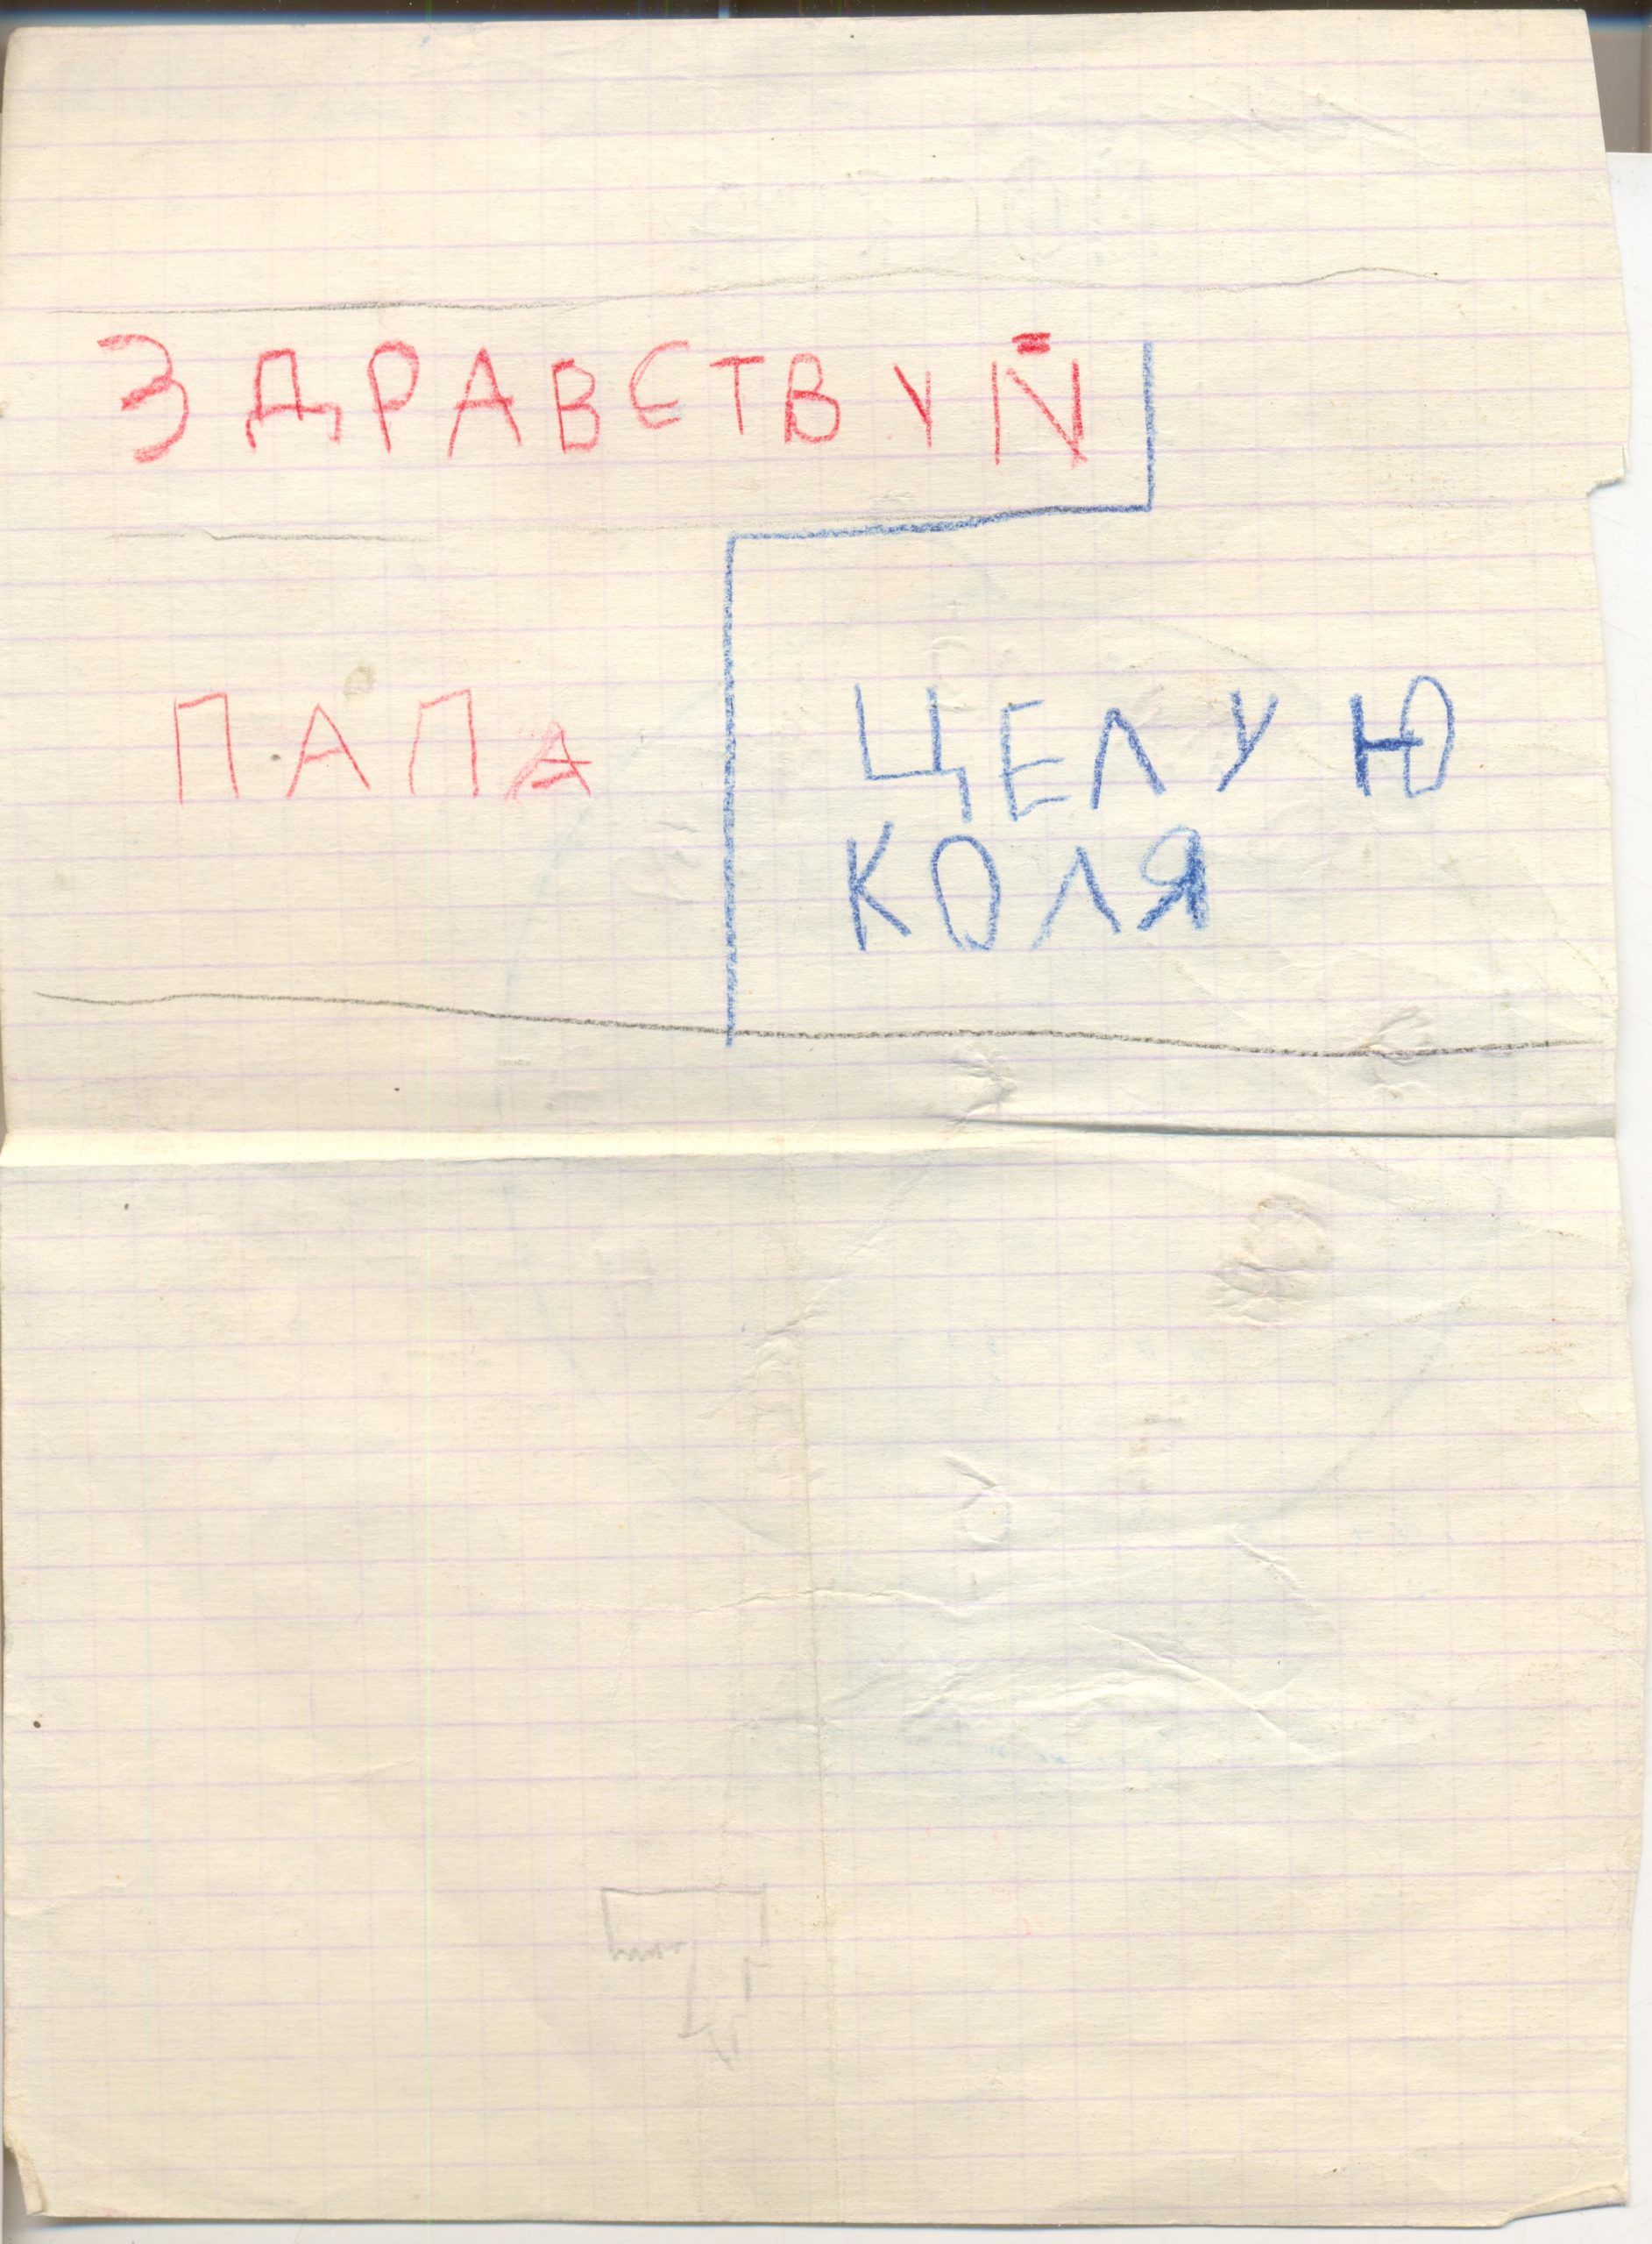 ЗДРАВСТВУЙ
ПАПА
ЦЕЛУЮ
КОЛЯ